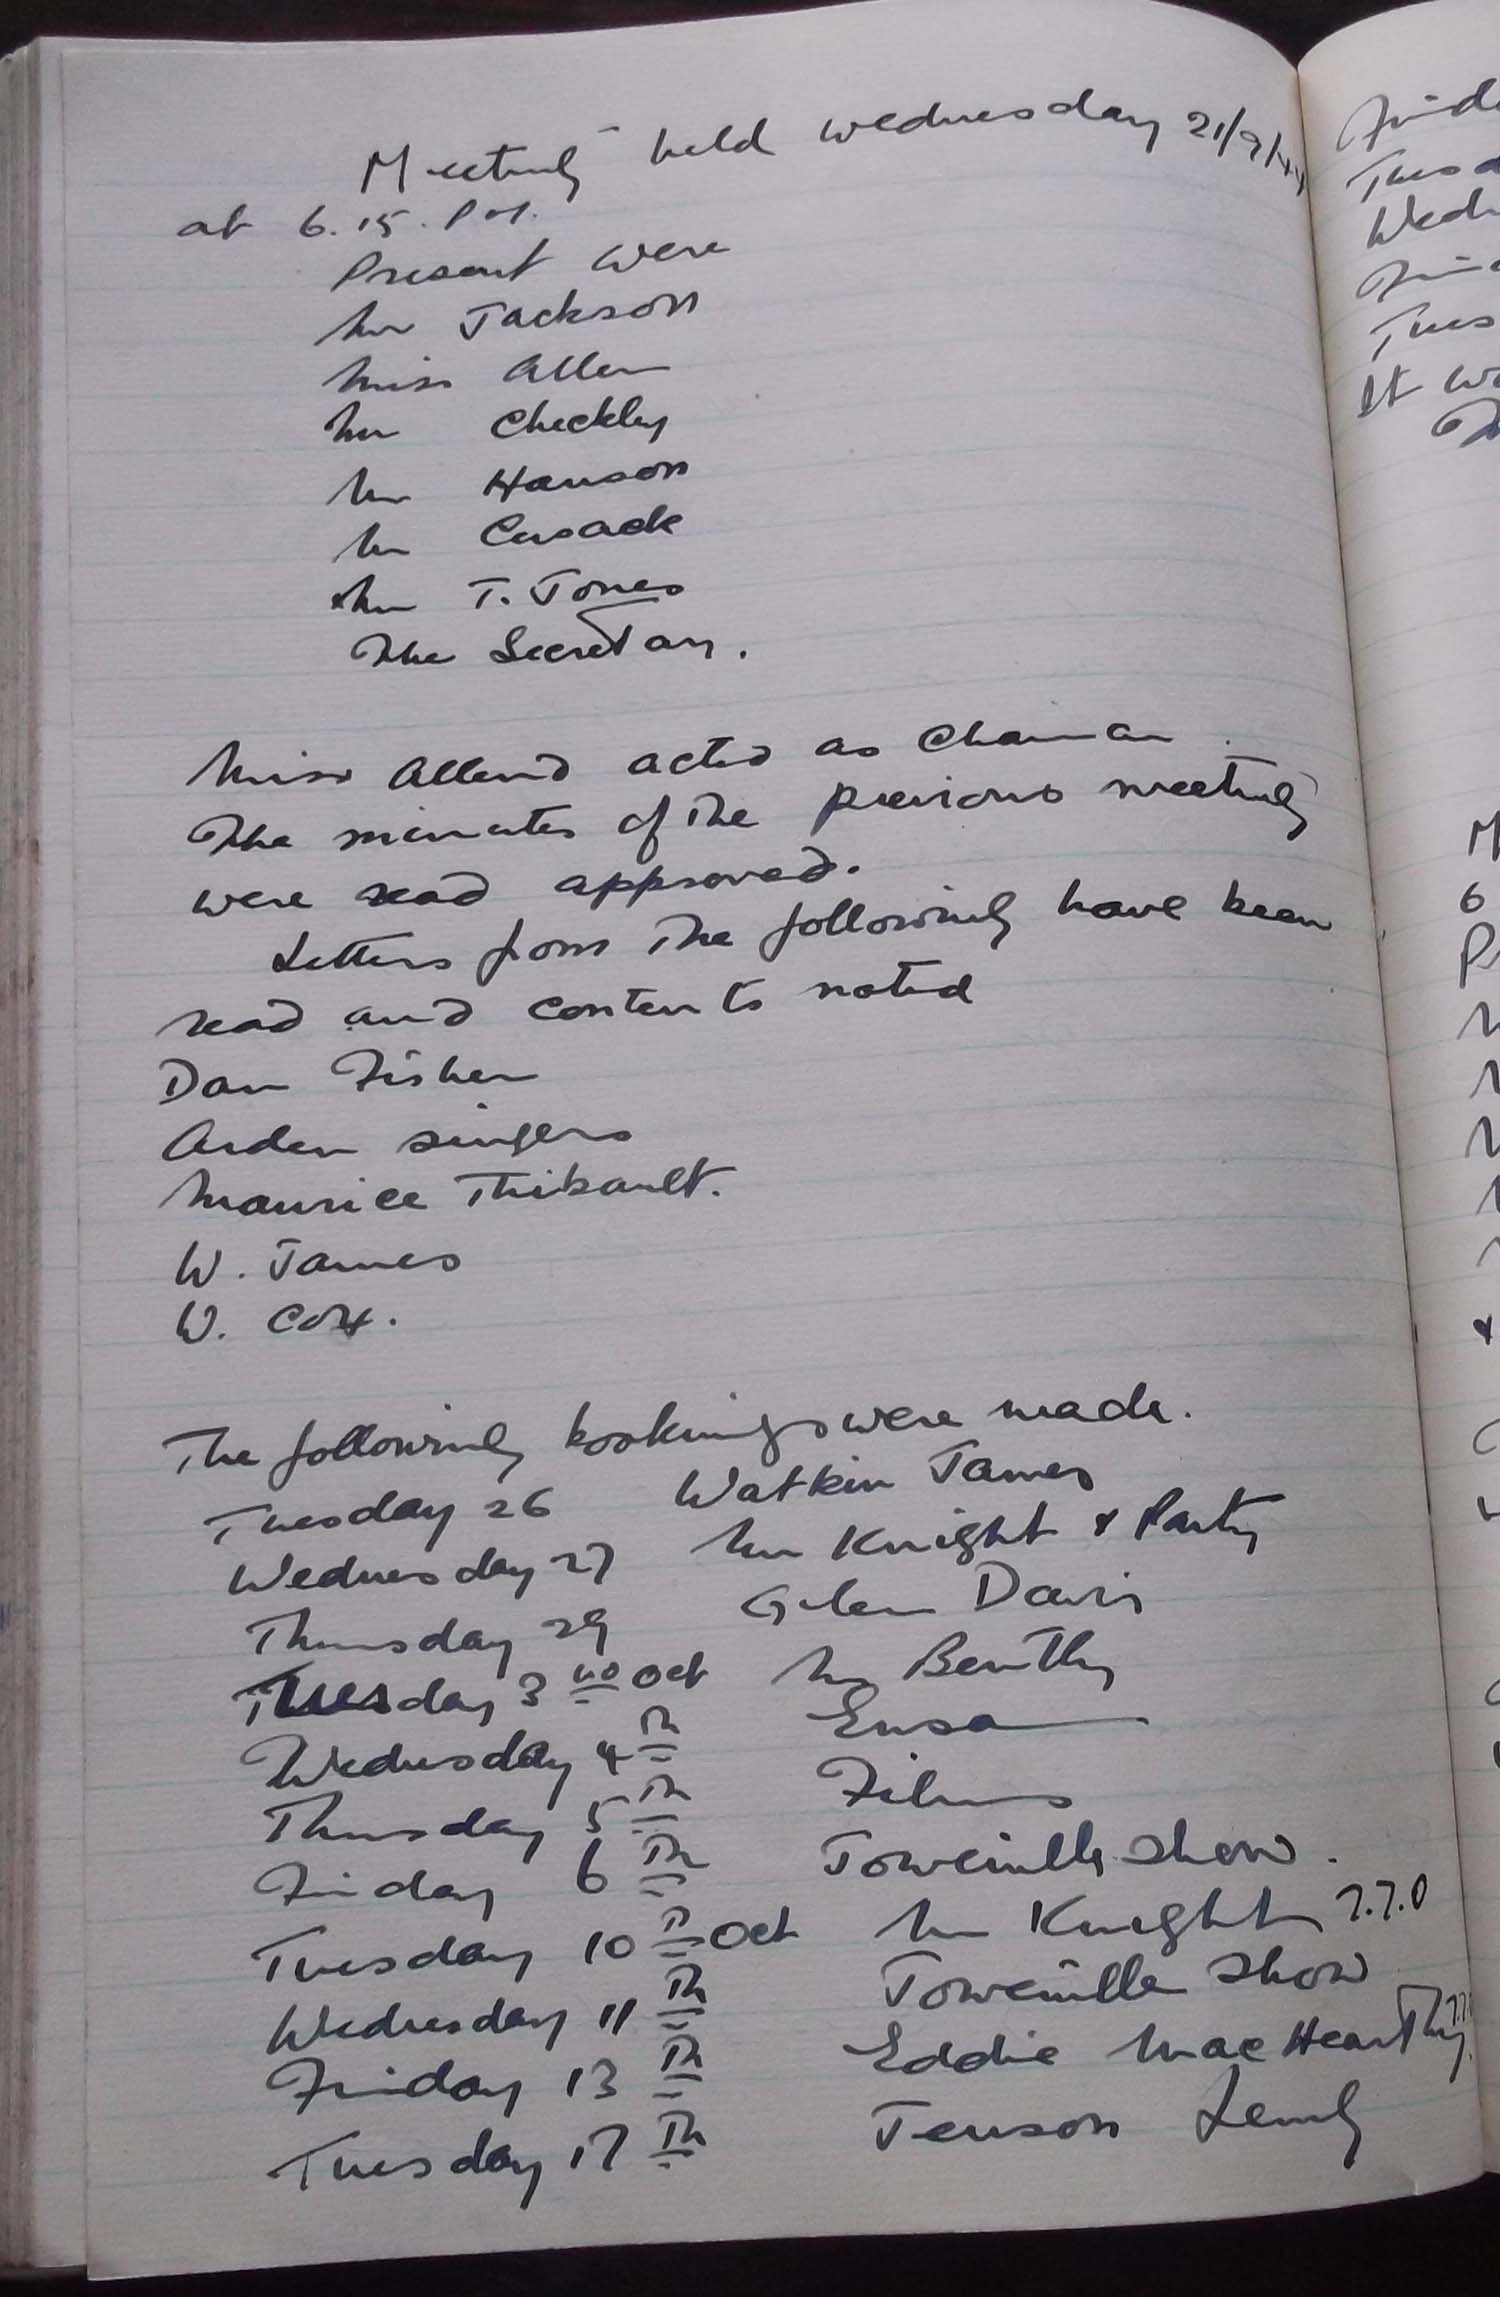 Meeting held Wednesday 21/9/44
at 6.15. P.M.
Present were
Mr Jackson
Miss Allen
Mr Checkley
Mr Hanson
Mr Cusack
Mr T. Jones
The Secretary.
Miss Allend acted as Chairman.
The minutes of the previous meeting
were read approved.
Letters from the following have been
read and contents noted
Dan Fisher
Arden Singers
Maurice Thibault.
W. James
W. Cox.
The following bookings were made.
Tuesday 26 Watkin James
Wednesday 27 Mr Knight & Party
Thursday 29 Glen Davis
Tuesday 3 Oct Mr Bently
Wednesday 4th Ensa
Thursday 5th Films
Friday 6th Towerville Show.
Tuesday 10th Oct Mr Knight 7.7.0
Wednesday 11th Towerville Show
Friday 13th Eddie MacHearthy
Tuesday 17th Jenson
Frid
Tues
Wed
Tues
It